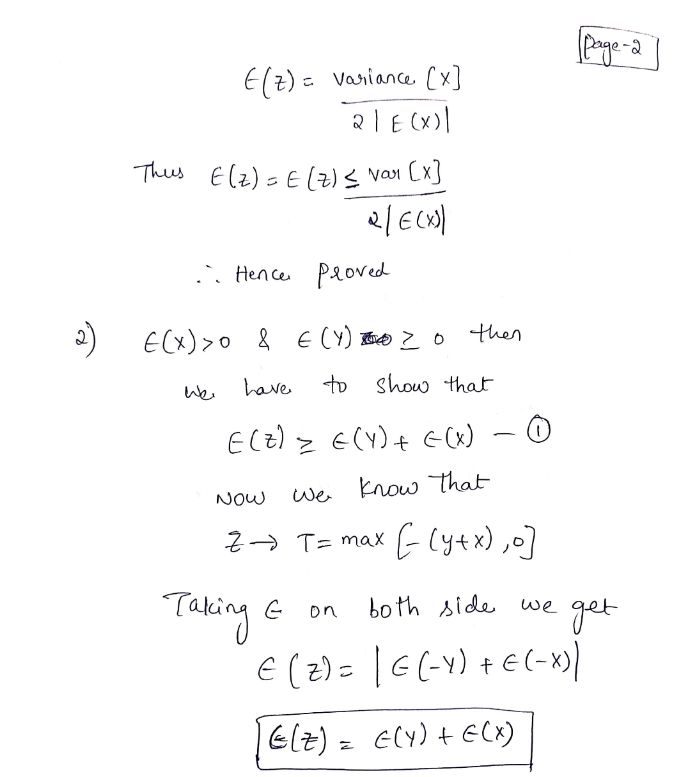 Page-2
E(z) = variance [x]
2|E(x)|
Thus E(z) = E(z) ≤ var [x]
2|E(x)|
∴ Hence proved
2) E(x)>0 & E(Y) ≥ 0 then
we have to show that
E(z) ≥ E(Y) + E(x) — ①
Now we know that
Z → T = max [-(y+x),0]
Taking E on both side we get
E(z) = |E(-Y) + E(-x)|
E(z) = E(Y) + E(x)